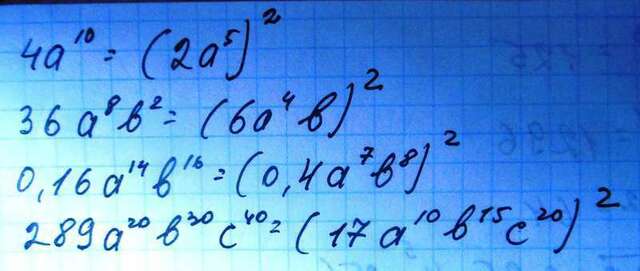 4a¹⁰ = (2a⁵)²
36a⁸b² = (6a⁴b)²
0,16a¹⁴b¹⁶ = (0,4a⁷b⁸)²
289a²⁰b³⁰c⁴⁰ = (17a¹⁰b¹⁵c²⁰)²